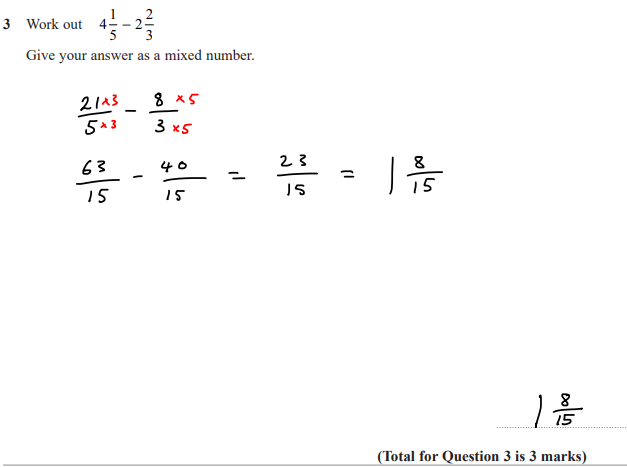 3 Work out 4 1/5 – 2 2/3
Give your answer as a mixed number.
21×3/5×3 – 8×5/3×5
63/15 – 40/15 = 23/15 = 1 8/15
1 8/15
(Total for Question 3 is 3 marks)